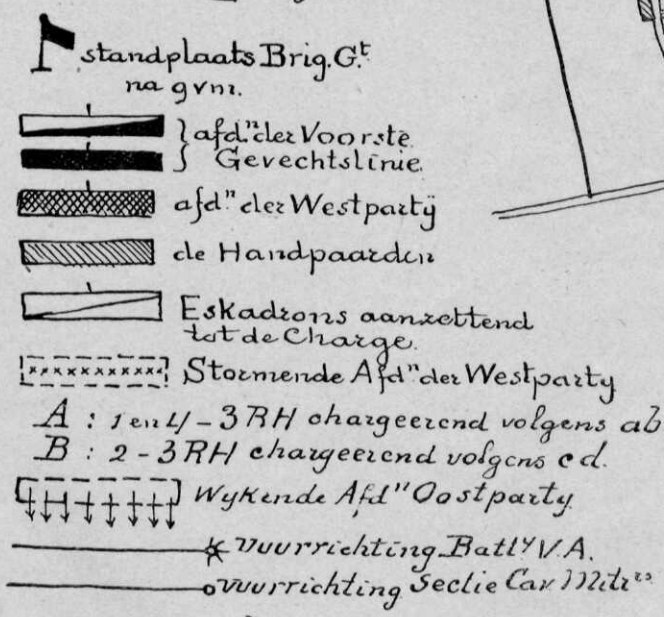 standplaats Brig. Gt.
na gvm.
afdn der Voorste
Gevechtslinie.
afdn der Westpartij
de Handpaarden
Eskadrons aanzettend
tot de Charge.
Stormende Afdn der Westparty
A : 1 en 4 - 3 RH chargeerend volgens ab
B : 2 - 3 RH chargeerend volgens cd.
Wykende Afdn Oostparty
Vuurrichting Batty V.A.
Vuurrichting Sectie Cav Mitrs